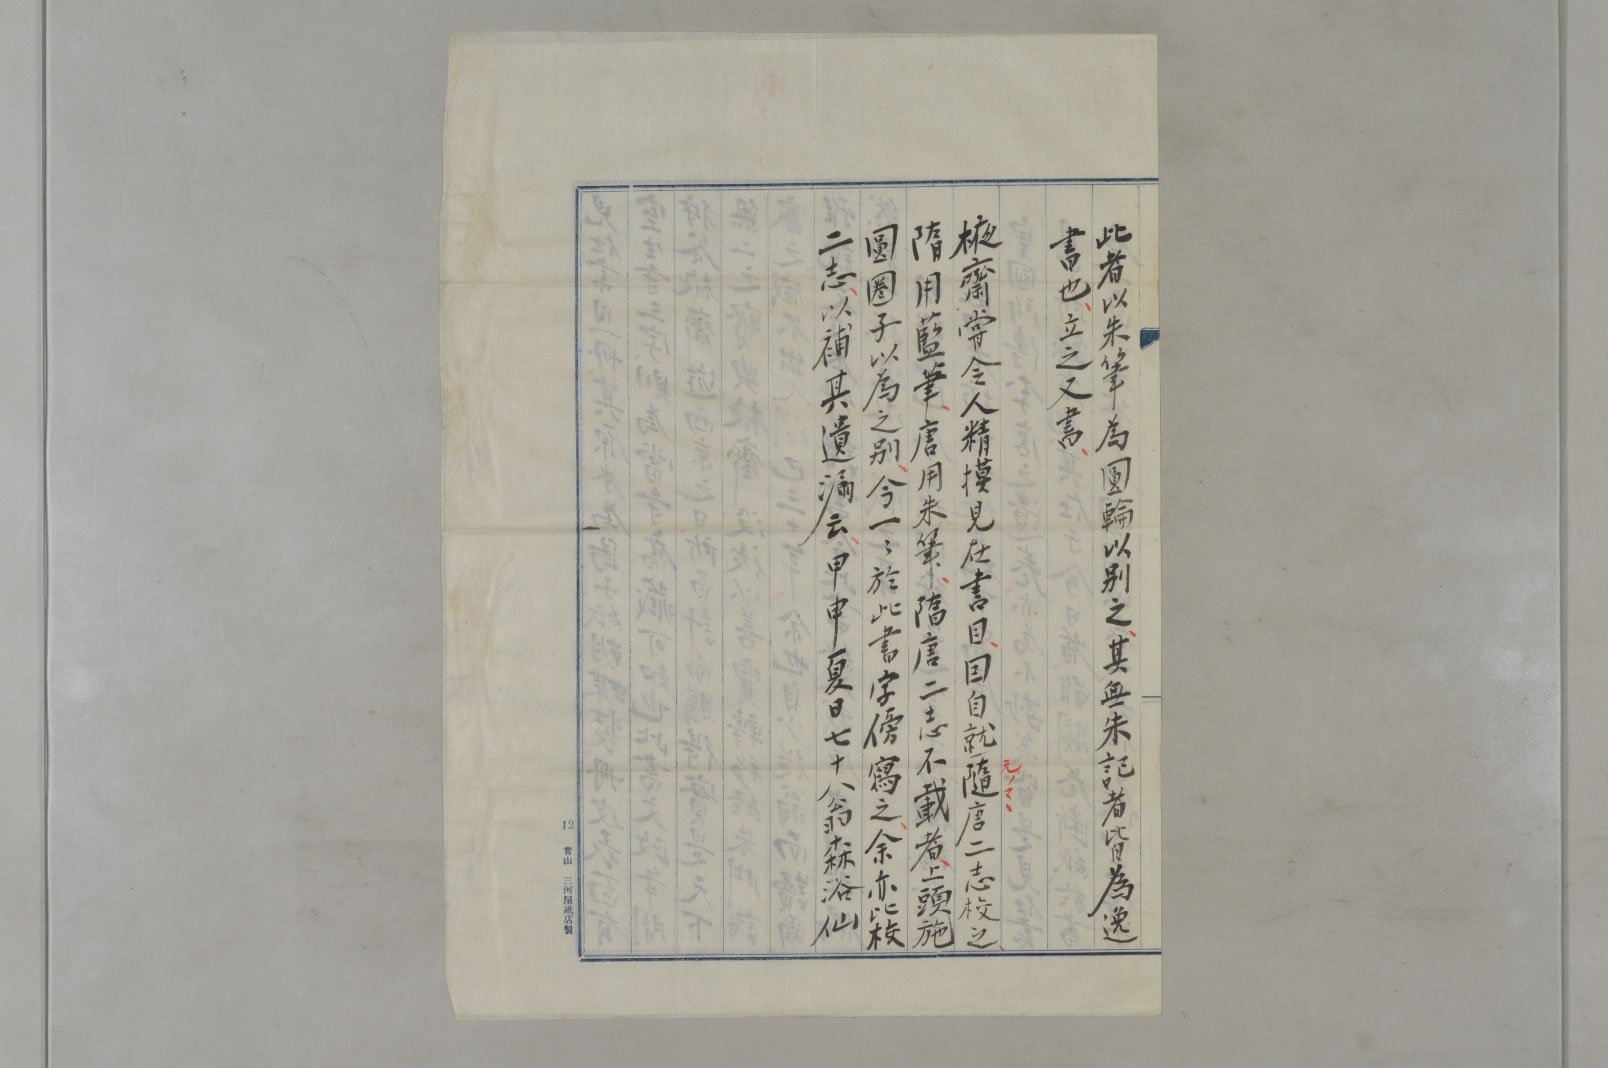 此者以朱筆為圓輪以別之、其無朱記者皆為逸
書也、立之又書、
棭齋嘗令人精摸見在書目、因自就隨唐二志校之、
元ノマヽ
隋用藍筆、唐用朱筆、隋唐二志不載者、上頭施
圓圈子以為之別、今一〻於此書字傍寫之、余亦比校
二志、以補其遺漏云、甲申夏日七十八翁森浴仙
12 青山 三河屋紙店製